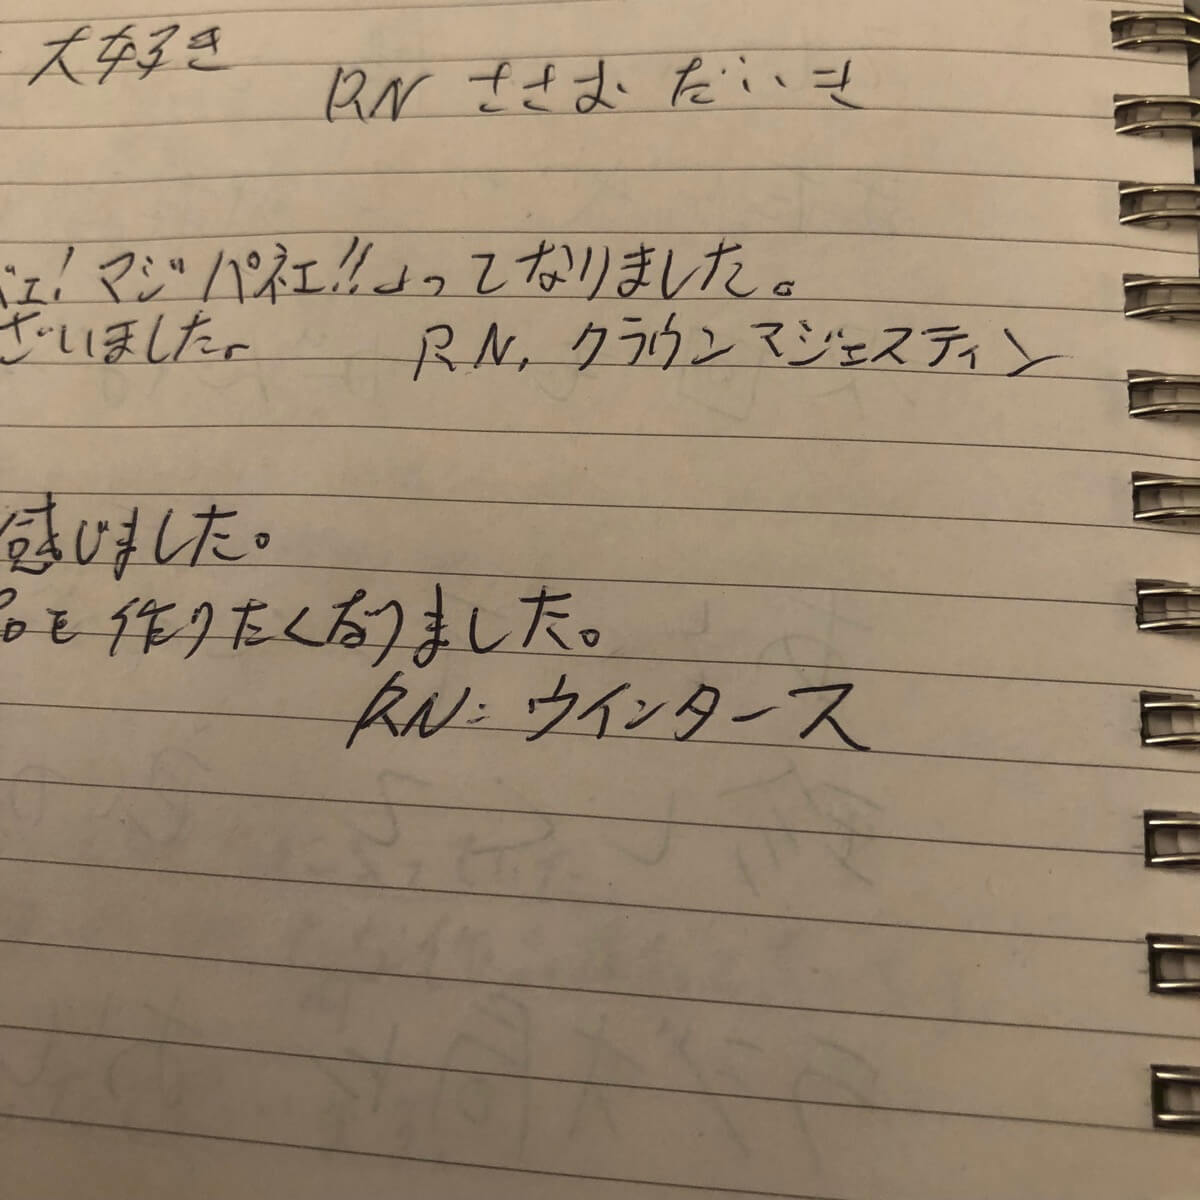 大好き
RN ささお だいき
ェ!マジパネェ!!」ってなりました。
ざいました。 RN, クラウンマジェスティン
感じました。
品も作りたくなりました。
RN:ウインタース